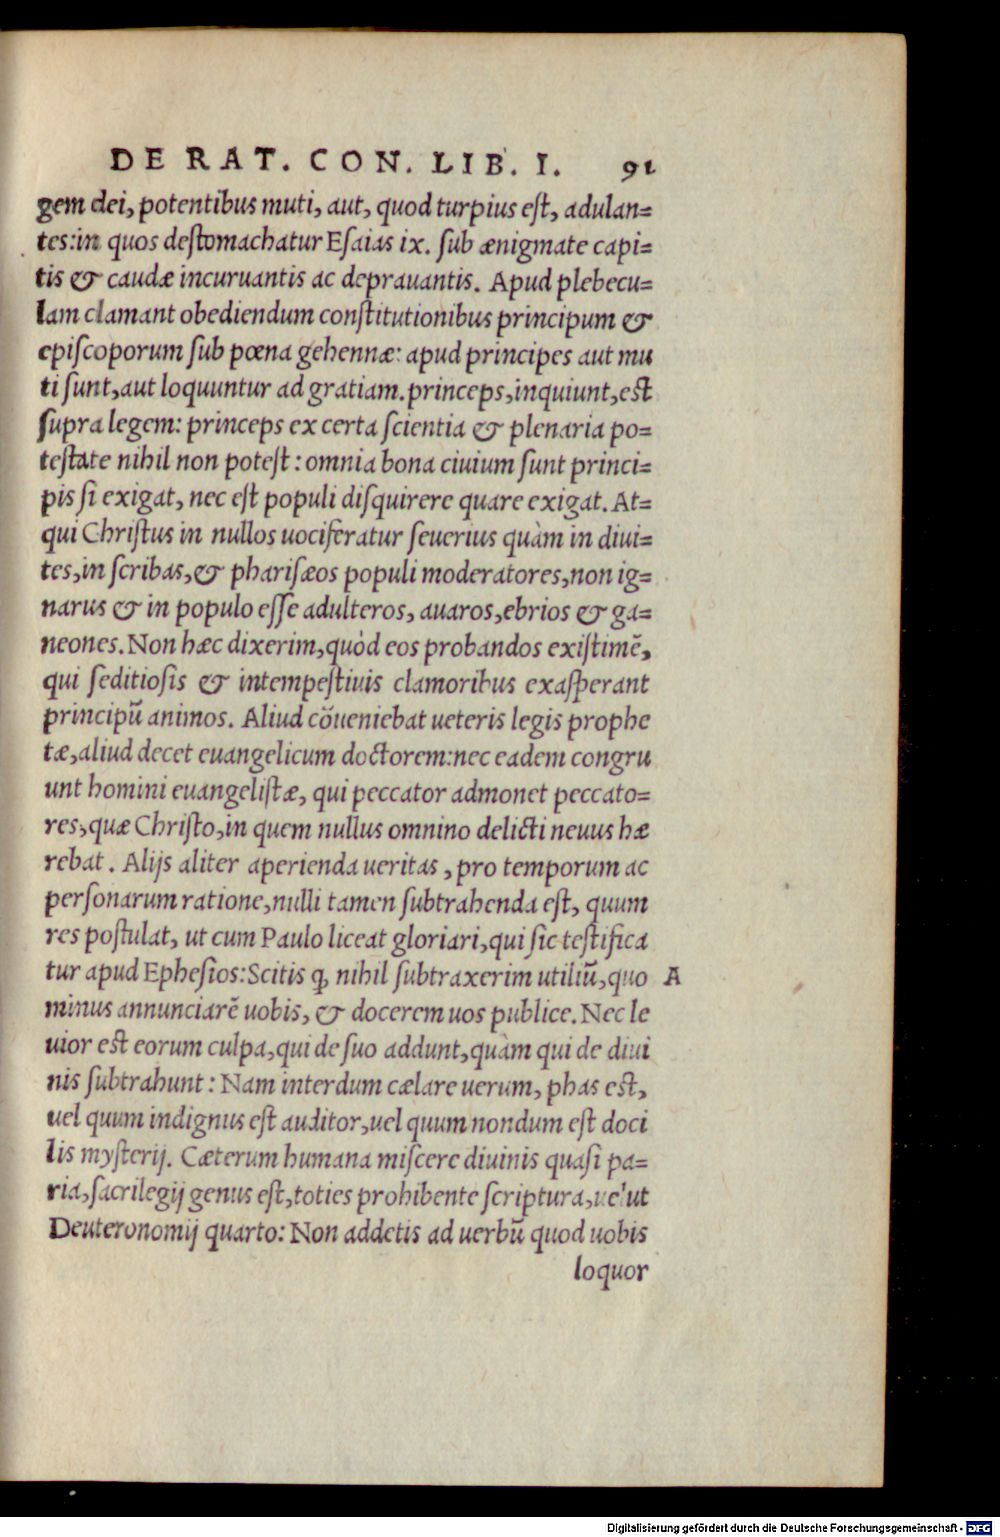 DE RAT. CON. LIB. I. 91
gem dei, potentibus muti, aut, quod turpius eſt, adulan=
tes:in quos deſtomachatur Eſaias ix. ſub ænigmate capi=
tis & caudæ incuruantis ac deprauantis. Apud plebecu=
lam clamant obediendum conſtitutionibus principum &
epiſcoporum ſub pœna gehennæ: apud principes aut mu
ti ſunt,aut loquuntur ad gratiam.princeps,inquiunt,eſt
ſupra legem: princeps ex certa ſcientia & plenaria po=
teſtate nihil non poteſt: omnia bona ciuium ſunt princi=
pis ſi exigat, nec eſt populi diſquirere quare exigat. At=
qui Chriſtus in nullos uociferatur ſeuerius quàm in diui=
tes,in ſcribas,& phariſæos populi moderatores,non ig=
narus & in populo eſſe adulteros, auaros,ebrios & ga=
neones. Non hæc dixerim,quòd eos probandos exiſtimē,
qui ſeditioſis & intempeſtiuis clamoribus exaſperant
principū animos. Aliud cōueniebat ueteris legis prophe
tæ,aliud decet euangelicum doctorem:nec eadem congru
unt homini euangeliſtæ, qui peccator admonet peccato=
res,quæ Chriſto,in quem nullus omnino delicti neuus hæ
rebat. Alijs aliter aperienda ueritas, pro temporum ac
perſonarum ratione,nulli tamen ſubtrahenda eſt, quum
res poſtulat, ut cum Paulo liceat gloriari,qui ſic teſtifica
tur apud Epheſios:Scitis ꝙ nihil ſubtraxerim utiliū,quo A
minus annunciarē uobis, & docerem uos publice. Nec le
uior eſt eorum culpa,qui de ſuo addunt,quàm qui de diui
nis ſubtrahunt: Nam interdum cælare uerum, phas eſt,
uel quum indignus eſt auditor,uel quum nondum eſt doci
lis myſterij. Cæterum humana miſcere diuinis quaſi pa=
ria,ſacrilegij genus eſt,toties prohibente ſcriptura,uelut
Deuteronomij quarto: Non addetis ad uerbū quod uobis
loquor
Digitalisierung gefördert durch die Deutsche Forschungsgemeinschaft - DFG